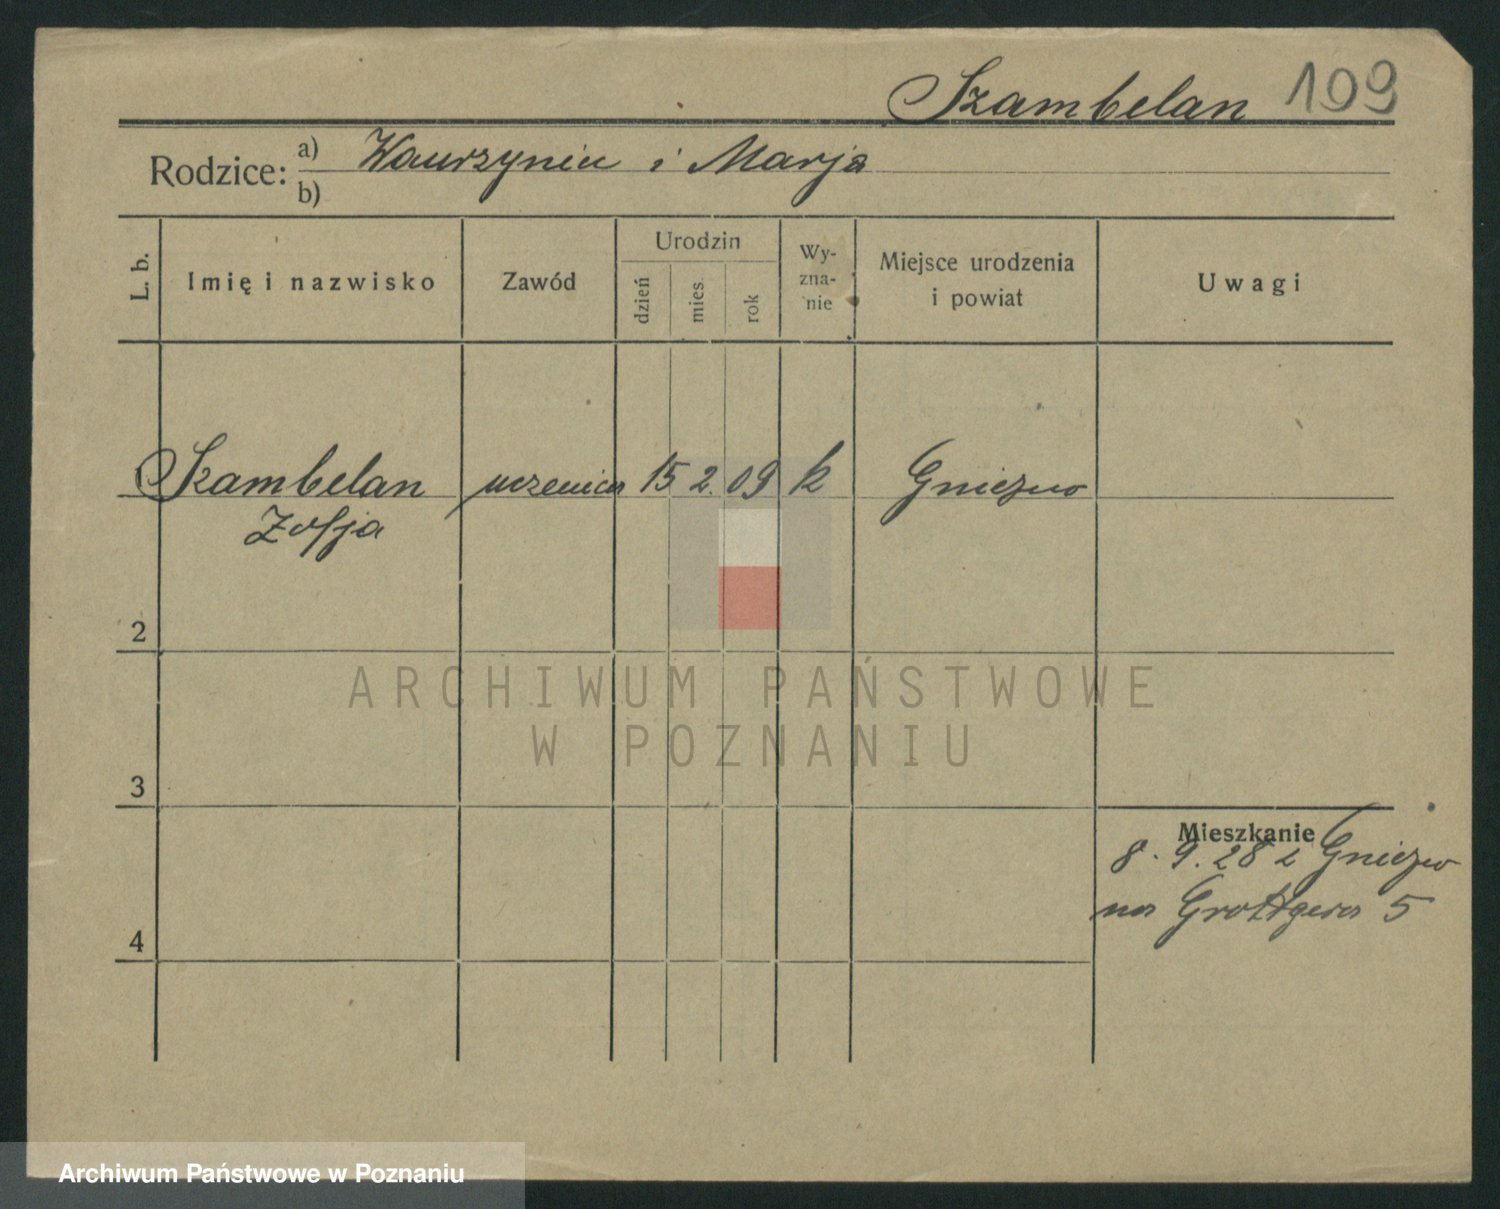 Szambelan 109
Rodzice: a) Wawrzyniec i Marja
b)
L. b.
Imię i nazwisko
Zawód
Urodzin
dzień
mies.
rok
Wy-
zna-
nie
Miejsce urodzenia
i powiat
Uwagi
Szambelan uczenica 15 2. 09 k Gniezno
Zofja
2
ARCHIWUM PAŃSTWOWE
W POZNANIU
3
Mieszkanie
8. 9. 28 z Gniezno
na Grottgera 5
4
Archiwum Państwowe w Poznaniu